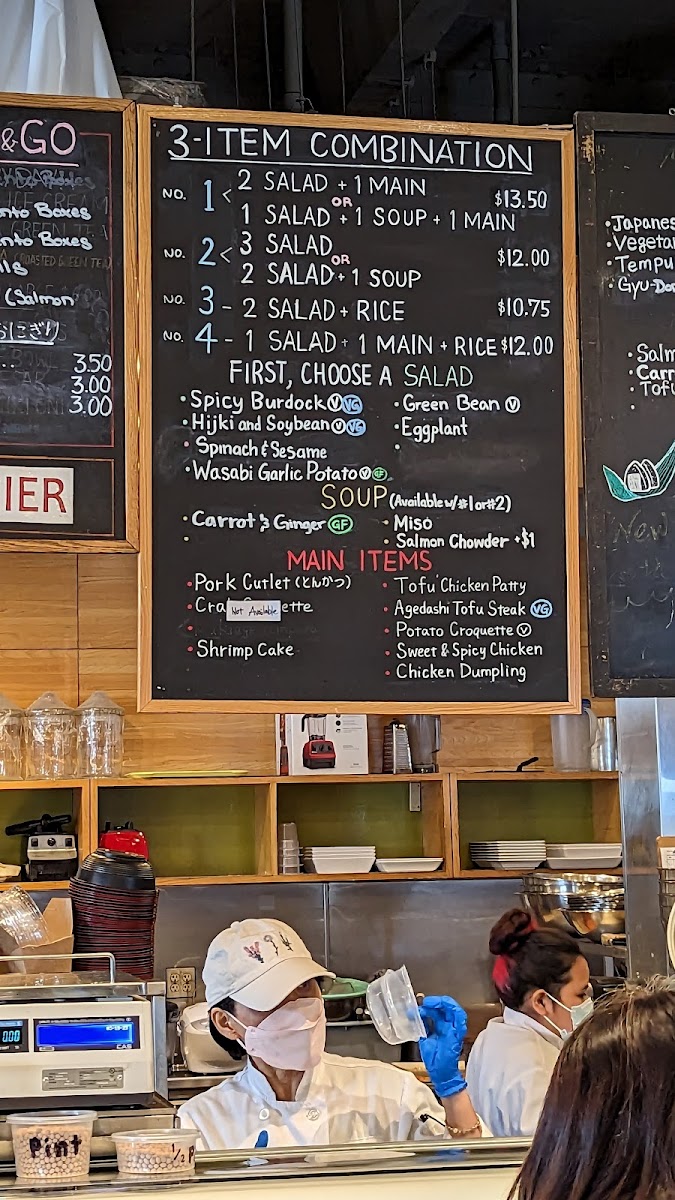 &GO
nto Boxes
nto Boxes
lls
(Salmon
おにぎり
3.50
3.00
3.00
IER
3-ITEM COMBINATION
NO. 1 < 2 SALAD + 1 MAIN
OR
1 SALAD + 1 SOUP + 1 MAIN
$13.50
NO. 2 < 3 SALAD
OR
2 SALAD + 1 SOUP
$12.00
NO. 3 - 2 SALAD + RICE $10.75
NO. 4 - 1 SALAD + 1 MAIN + RICE $12.00
FIRST, CHOOSE A SALAD
• Spicy Burdock V VG
• Hijki and Soybean V VG
• Spinach & Sesame
• Wasabi Garlic Potato V GF
• Green Bean V
• Eggplant
SOUP (Available w/ #1 or #2)
• Carrot & Ginger GF
• Miso
• Salmon Chowder +$1
MAIN ITEMS
• Pork Cutlet (とんかつ)
• Cra Not Available ette
• Shrimp Cake
• Tofu Chicken Patty
• Agedashi Tofu Steak VG
• Potato Croquette V
• Sweet & Spicy Chicken
• Chicken Dumpling
• Japanes
• Vegetar
• Tempu
• Gyu-Don
• Salm
• Carr
• Tofu
New
0.00
CAS
Pint
1/2 P